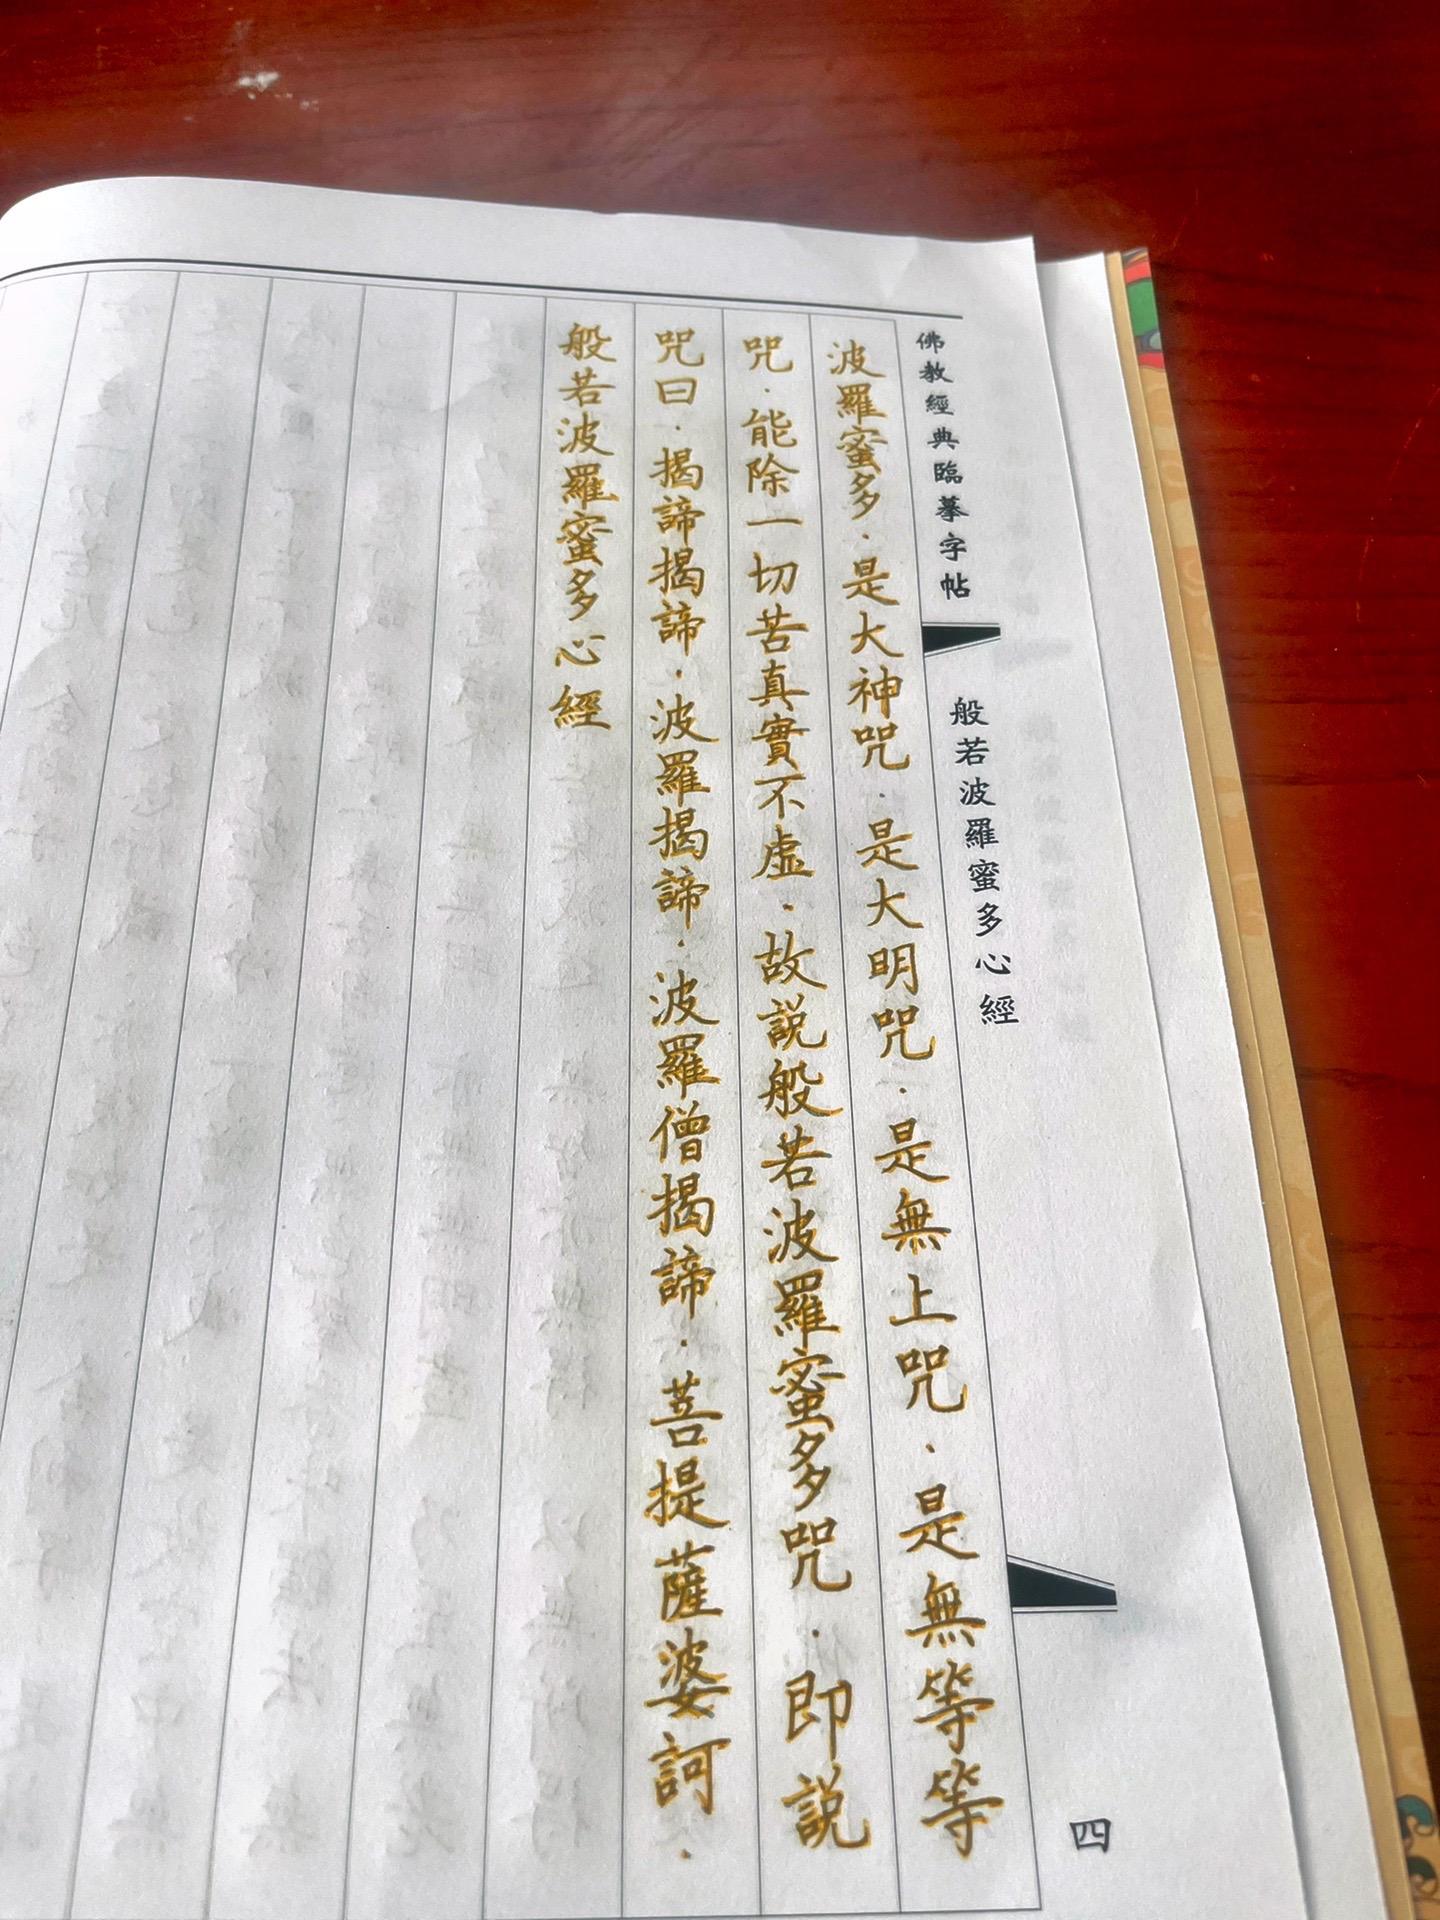 佛教經典臨摹字帖
般若波羅蜜多心經
四
波羅蜜多．是大神咒．是大明咒．是無上咒．是無等等
咒．能除一切苦真實不虛．故説般若波羅蜜多咒．即説
咒曰．揭諦揭諦．波羅揭諦．波羅僧揭諦．菩提薩婆訶．
般若波羅蜜多心經